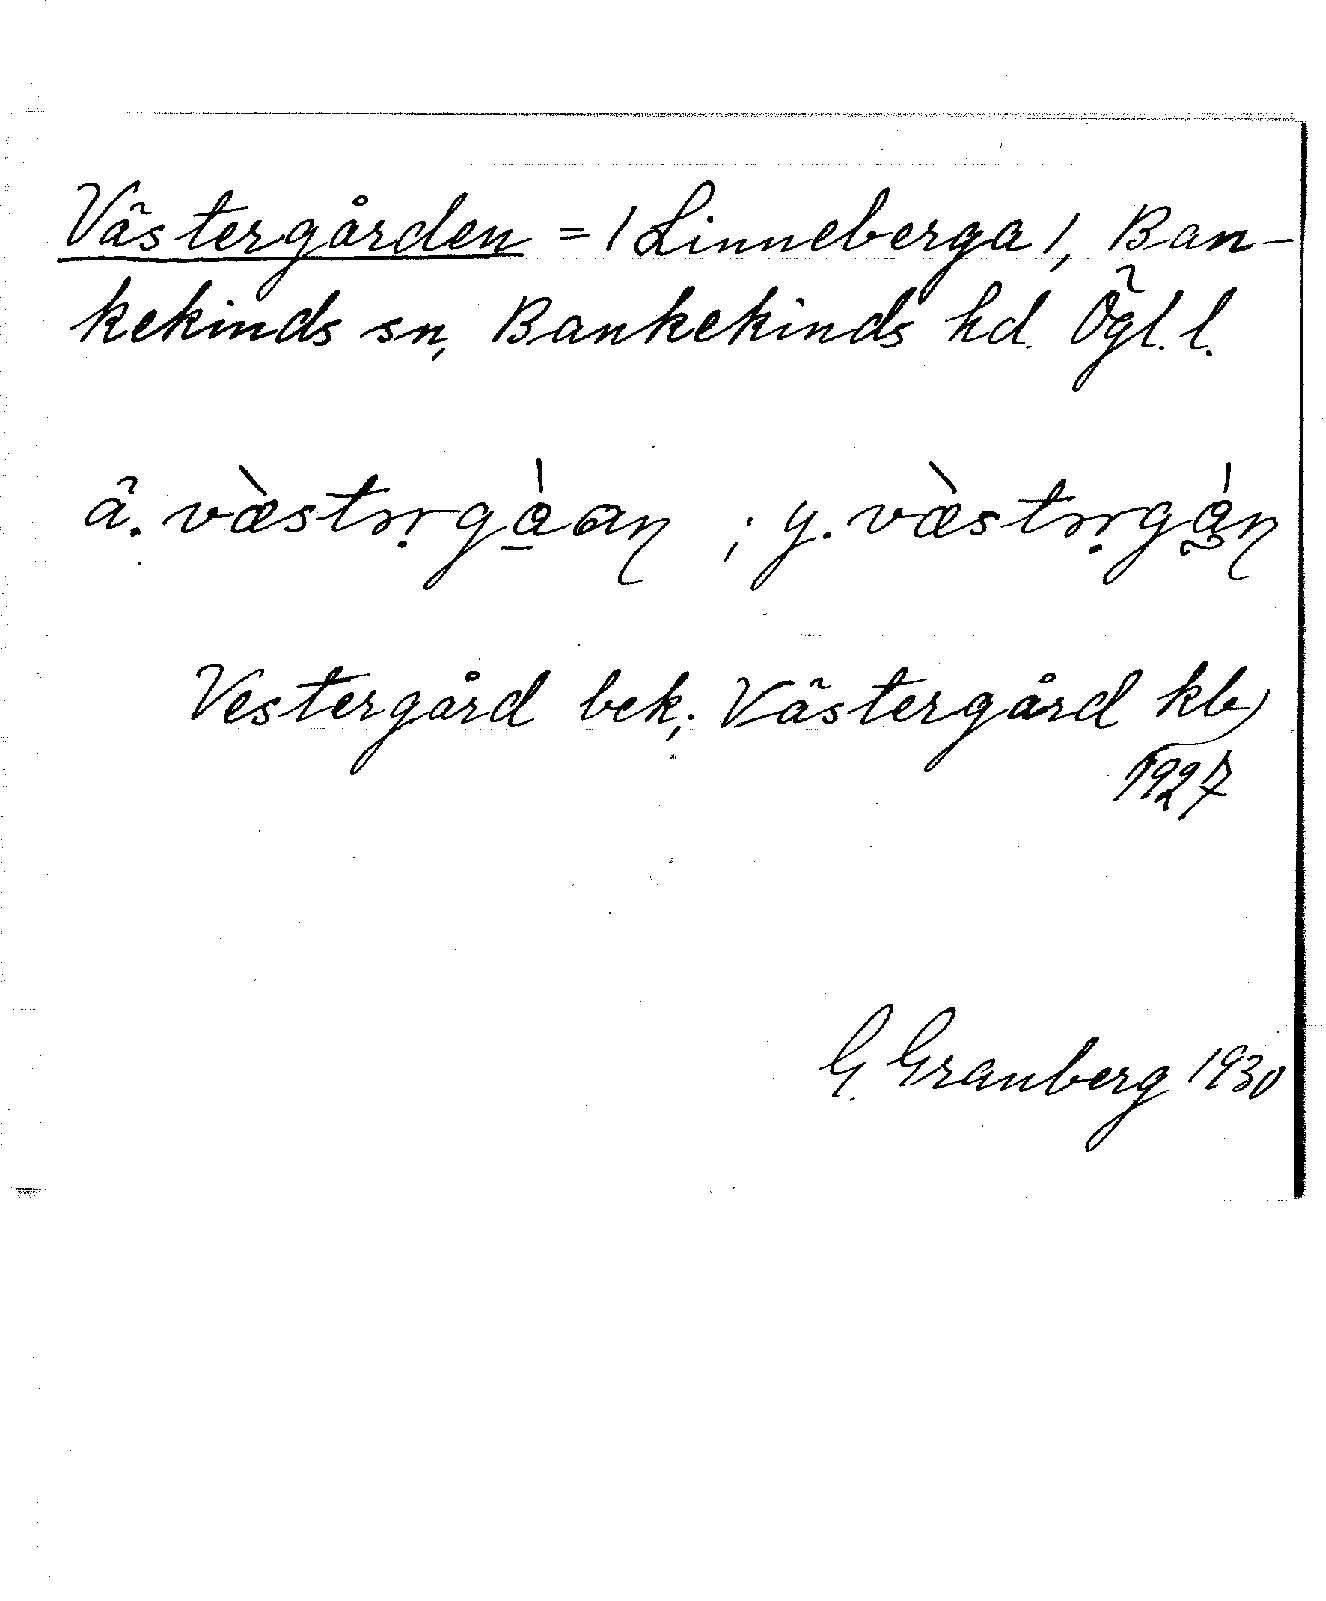 Västergården = /Linneberga/, Ban-
kekinds sn, Bankekinds hd. Ögl. l.
ä. ; y.
Vestergård bek; Västergård kb
1927
G. Granberg 1930